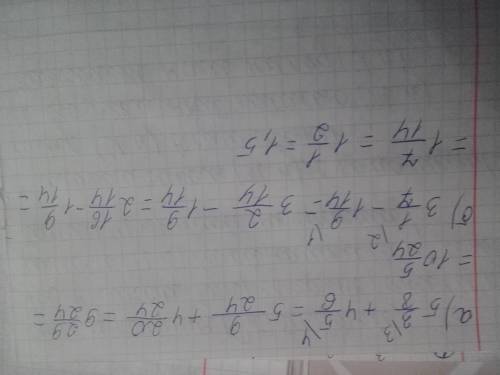 а) 5 3/8 \3 + 4 5/6 \4 = 5 9/24 + 4 20/24 = 9 29/24 =
= 10 5/24
б) 3 1/7 \2 - 1 9/14 \1 = 3 2/14 - 1 9/14 = 2 16/14 - 1 9/14 =
= 1 7/14 = 1 1/2 = 1,5